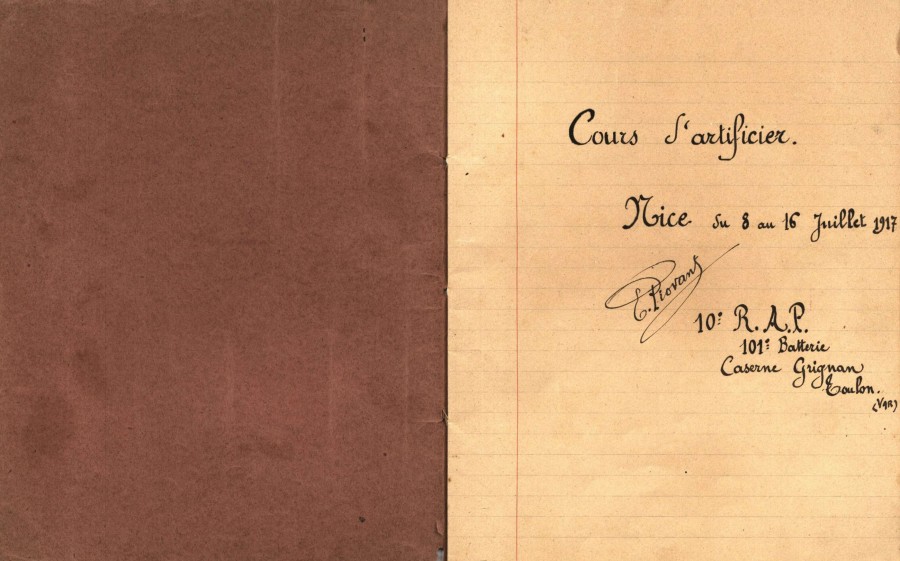 Cours d'artificier.
Nice du 8 au 16 Juillet 1917
E. Piovant
10e R.A.P.
101e Batterie
Caserne Grignan
Toulon.
(VAR)